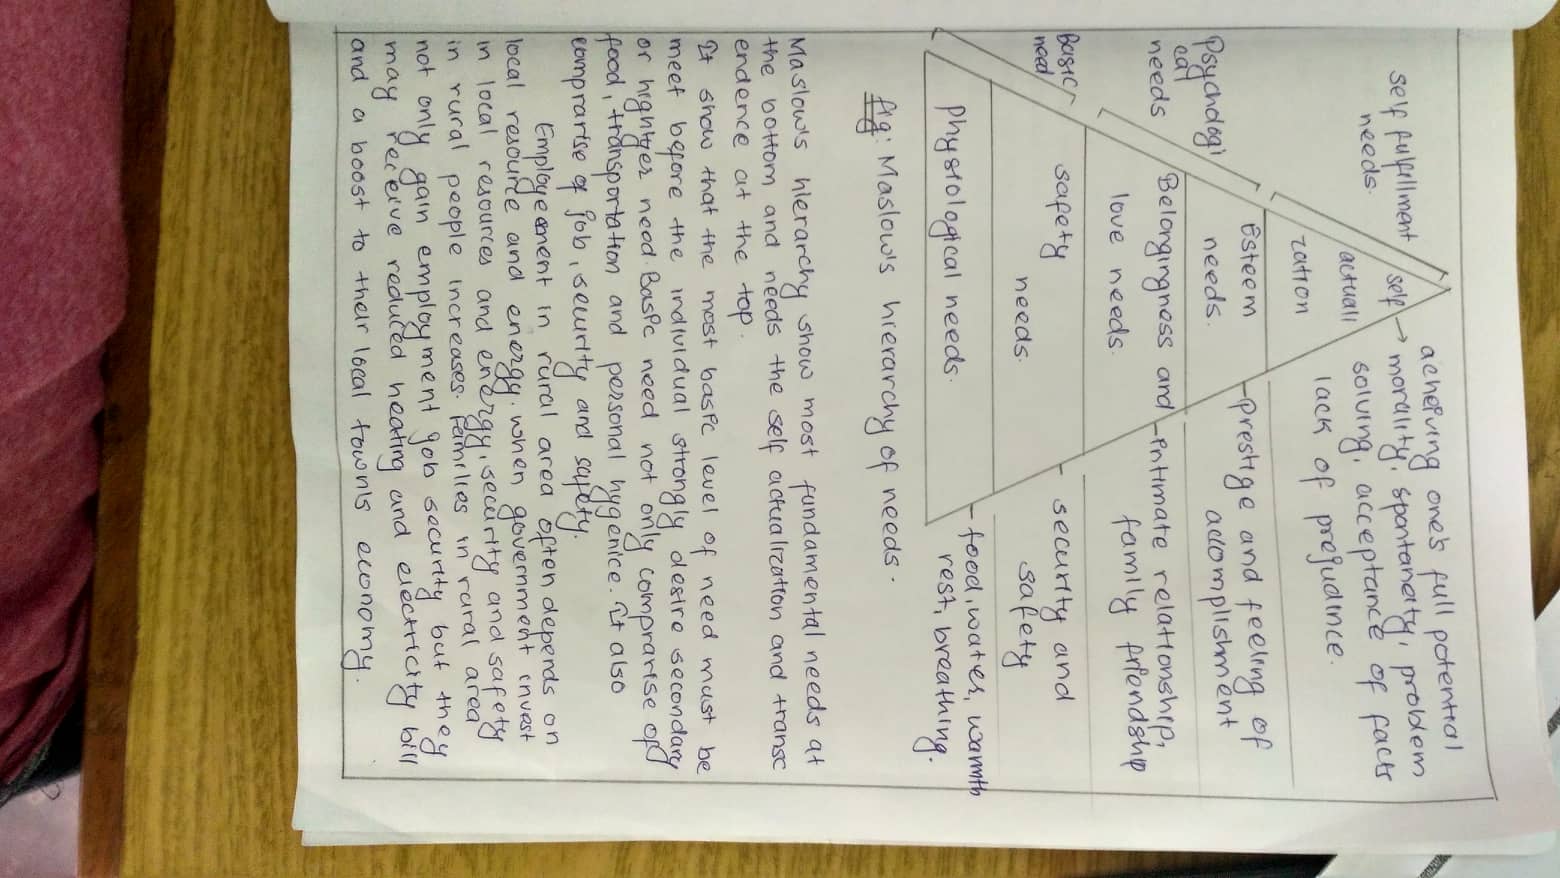 self fulfillment
needs.
Psychologi
cal
needs
Basic
need
self
actuali
zation
Esteem
needs.
Belongingness and
love needs.
safety
needs.
Physiological needs.
acheiving one's full potential
→ morality, spontaneity, problem
solving, acceptance of facts
lack of pregudince.
prestige and feeling of
accomplishment
intimate relationship,
family friendship
security and
safety
food, water, warmth
rest, breathing.
fig: Maslow's hierarchy of needs.
Maslow's hierarchy show most fundamental needs at
the bottom and needs the self actualization and transc
endence at the top.
It show that the most basic level of need must be
meet before the individual strongly desire secondary
or hightjer need Basic need not only comprarise of
food, transportation and personal hygenice. It also
comprarise of job, security and safety.
Employeement in rural area often depends on
local resource and energy. when government invest
in local resources and energy, security and safety
in rural people increases. Families in rural area
not only gain employment job security but they
may receive reduced heating and electricity bill
and a boost to their local towns economy.